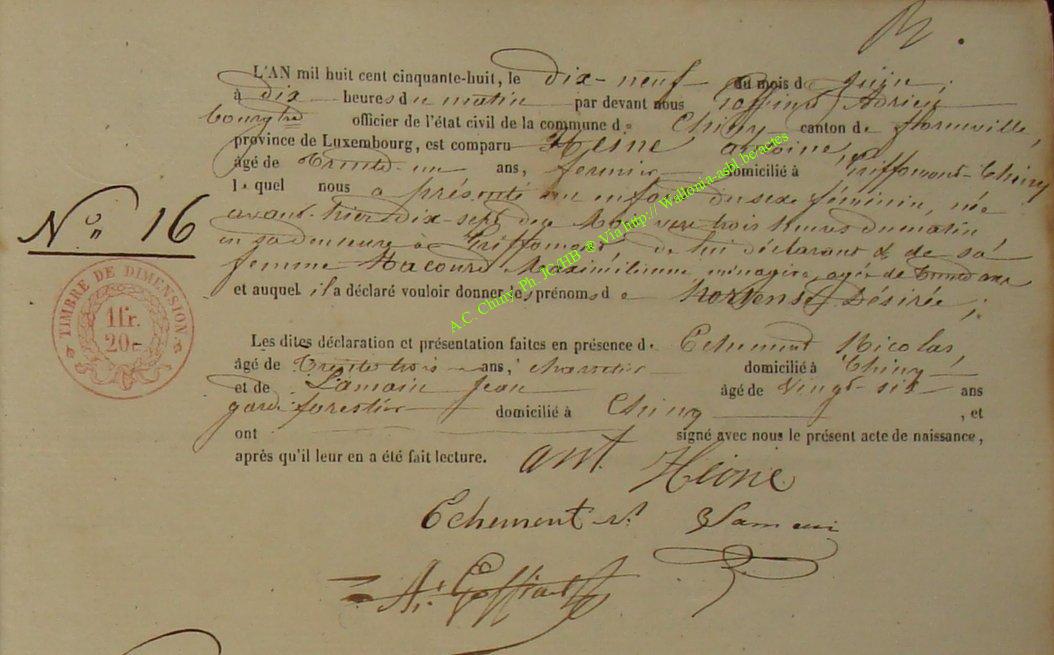 L'AN mil huit cent cinquante-huit, le dix-neuf du mois de Juin,
à dix heures du matin par devant nous Goffinet Adrien
bourgtre officier de l'état civil de la commune de Chiny canton de florenville,
province de Luxembourg, est comparu Heine antoine,
âgé de trente-un ans, fermier domicilié à Griffomont-Chiny
lequel nous a présenté un enfant du sexe féminin, née
avant-hier dix-sept de ce mois vers trois heures du matin
en sa demeure à Griffomont de lui déclarant & de sa
femme Macours Maximilienne ménagère, agée de trente ans
et auquel il a déclaré vouloir donner les prénoms de hortense Désirée;
Les dites déclaration et présentation faites en présence de Echement Nicolas,
âgé de trente trois ans, charretier domicilié à Chiny
et de Lamain Jean âgé de vingt-six ans
garde forestier domicilié à Chiny, et
ont signé avec nous le présent acte de naissance,
après qu'il leur en a été fait lecture.
N° 16
TIMBRE DE DIMENSION
1 fr.
20
ant. Heine
Echement N. Lamain
A. Goffinet
A.C. Chiny Ph. JC/HB ® Via http:// Wallonia-asbl be/actes